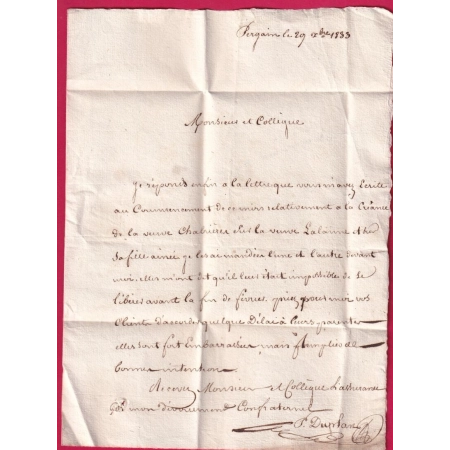 Pergain le 29 xbre 1833
Monsieur et Collègue
Je réponds enfin a la lettre que vous m'avez Ecrite
au Commencement de ce mois relativement a la Créance
de la veuve Chabrières chés la veuve Lalanne et
sa fille ainée je les ai mandées l'une et l'autre devant
moi, elles m'ont dit qu'il leur était impossible de se
libérer avant la fin de février, priez pour moi vos
Clients d'accorder quelque Délai à leurs
elles sont fort Embarrassées mais remplies de
bonnes intentions
Recevez Monsieur et Collègue l'assurance
de mon dévouement Confraternel
P. Duplan